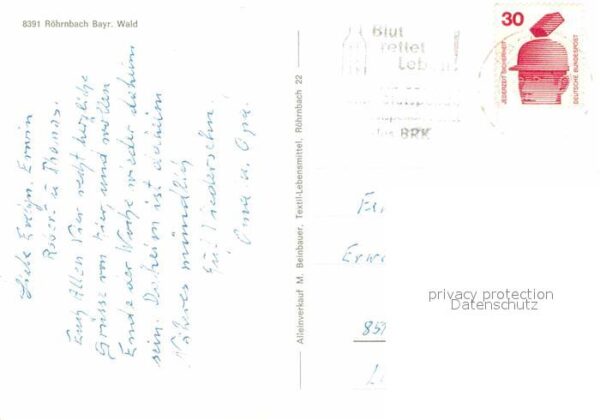 8391 Röhrnbach Bayr. Wald
Liebe Evelyn, Erwin
Robert u Thomas.
Euch Allen Vier recht herzliche
Grüsse von hier, und wollen
Ende der Woche wieder daheim
sein. Daheim ist daheim
Näheres mündlich
Auf Wiedersehn.
Oma u. Opa.
Alleinverkauf M. Beinbauer, Textil-Lebensmittel, Röhrnbach 22
Blut
rettet
Leben
BRK
30
JEDERZEIT SICHERHEIT
DEUTSCHE BUNDESPOST
Erw
85
privacy protection
Datenschutz